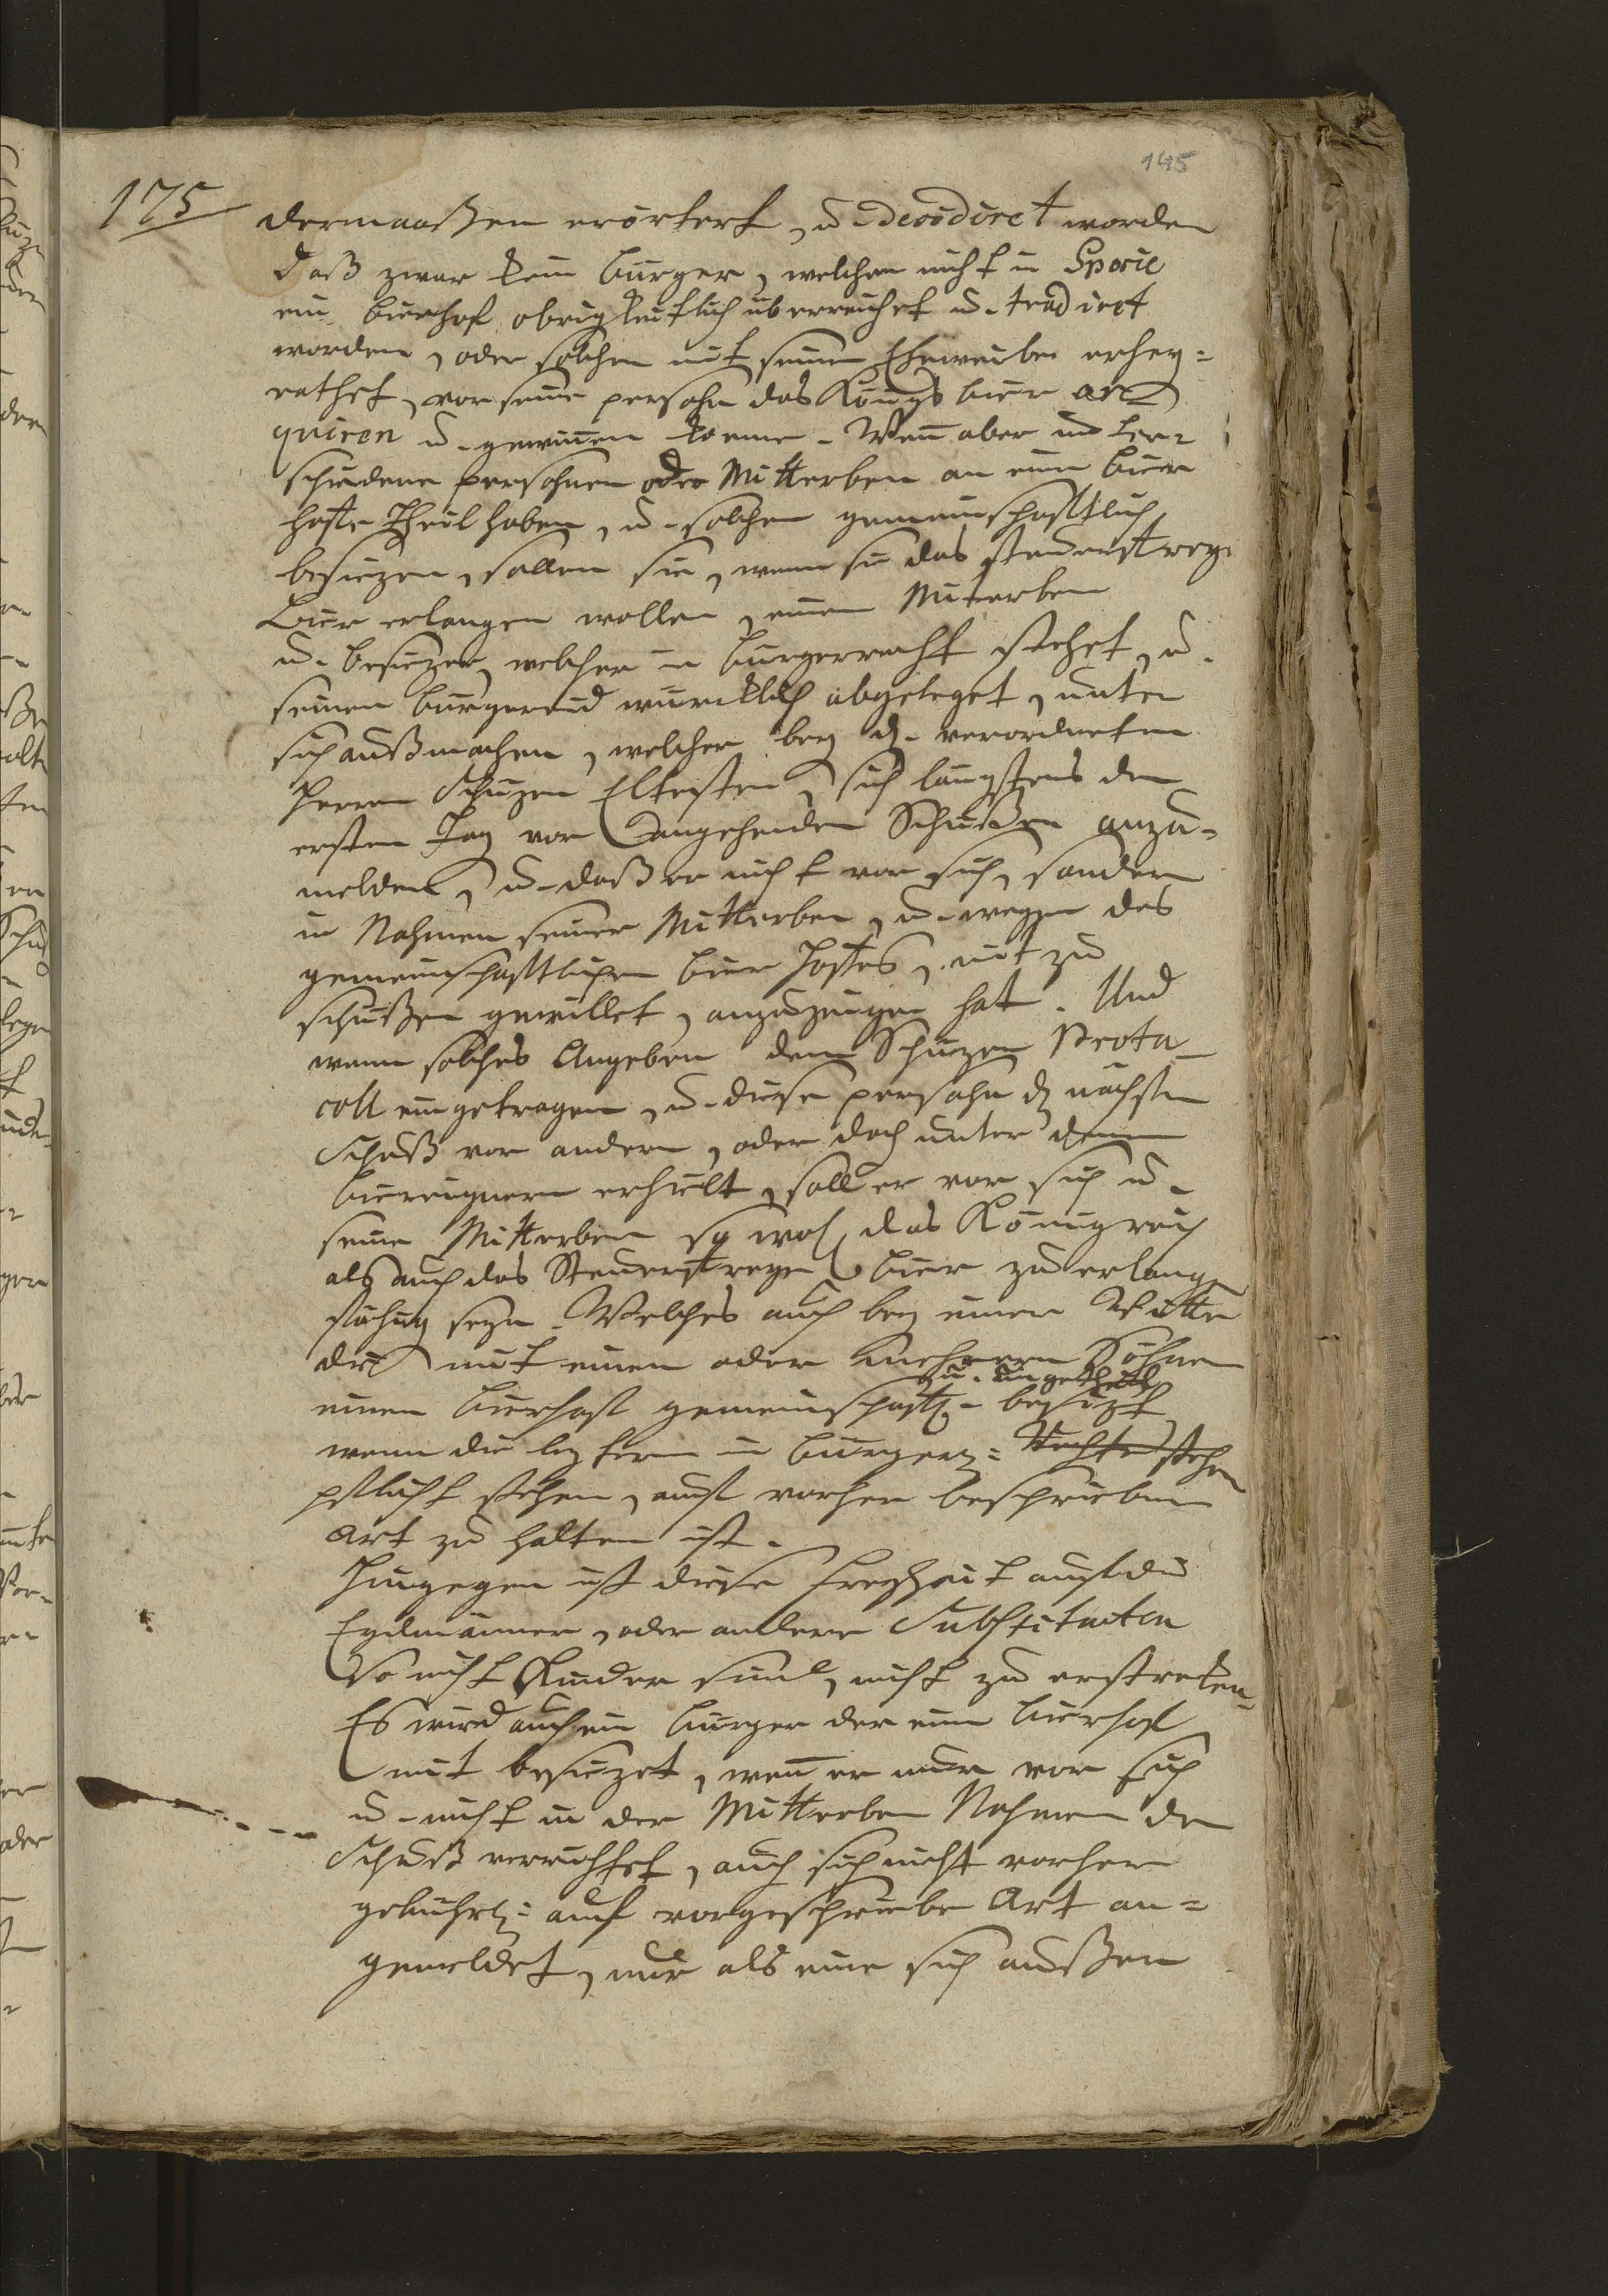 145
175
dermaaßen erörtert, u. decidiret worden
daß zwar kein bürger, welchen nicht in Specie
ein bierhoff obrigkeitlich überreichet u. tradiret
worden, oder solchen mit seinem Eheweibe erhey=
rathet, vor seine persohn das Königs bier ac
quiren u. gewinnen könne. Wenn aber unter=
schiedene persohnen oder Mitterben an einem bier
hoffe Theil haben, u. solchen gemeinschafftlich
besitzen, sollen sie, wenn sie das
bier erlangen wollen, einen Miterben
u. besitzer, welcher in bürgerrecht stehet, u.
seinen bürgereid würcklich abgeleget, unter
sich außmachen, welcher bey d. verordneten
Herren Schüzen Eltesten, sich längstens den
ersten Tag vor angehenden Schüßen anzu=
melden, u. daß er nicht vor sich, sondern
in Nahmen seiner Mitterben, u. wegen des
gemeinschafftlichen bier Hoffes, mit zu
schüßen gewillet, anzuzeigen hat. Und
wenn solches Angeben dem Schüzen Proto
coll eingetragen, u. diese persohn d. nächsten
Schuß vor andern, oder doch unter denen
biereignern erhielt, soll er vor sich u.
seine Mitterben so wol das Königreich
als auch das bier zu erlangen
fähig seyn. Welches auch bey einer Witte
die mit einem oder mehrern Söhnen
u. ungetheilt
einen bierhoff gemeinschafftl. besizt
wenn die leztern in bürger= Rechte stehen
pflicht stehen, auff vorher beschriebene
Art zu halten ist.
Hingegen ist diese Freyheit auff die
Eydmänner, oder andere Substituten
so nicht Kinder sind, nicht zu erstrecken.
Es wird auch ein bürger der einen bierhoff
mit besizet, wenn er nur vor sich
u. nicht in der Mitterben Nahmen den
Schuß verrichtet, auch sich nicht vorher
gebührl: auf vorgeschriebene Art an=
gemeldet, nur als eine sich außen